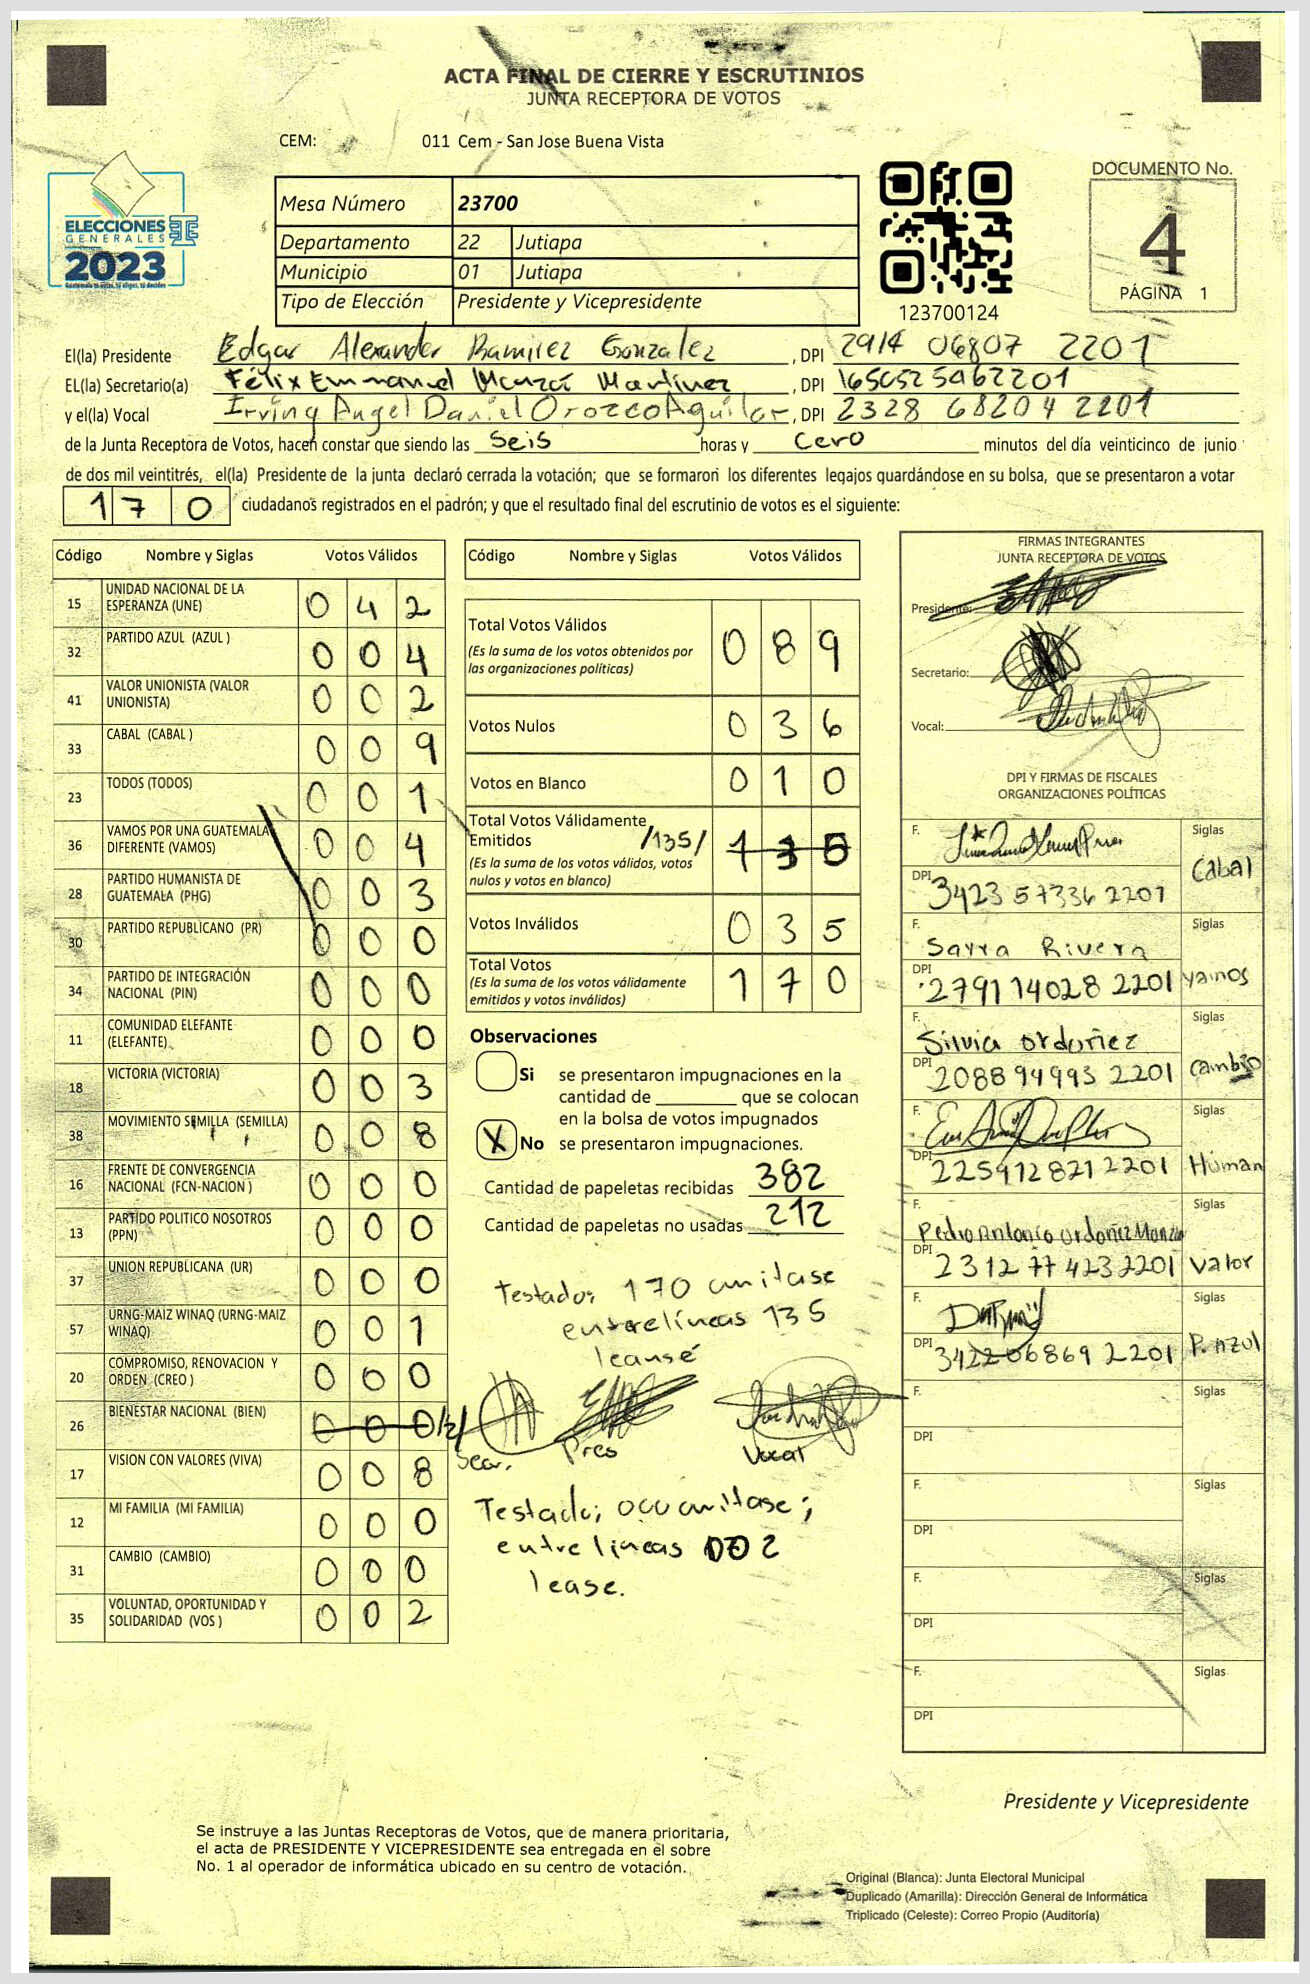 ACTA FINAL DE CIERRE Y ESCRUTINIOS
JUNTA RECEPTORA DE VOTOS
CEM: 011 Cem - San Jose Buena Vista
ELECCIONES
GENERALES
2023
Guatemala es vida, tú eliges, tú decides
Mesa Número 23700
Departamento 22 Jutiapa
Municipio 01 Jutiapa
Tipo de Elección Presidente y Vicepresidente
123700124
DOCUMENTO No.
4
PÁGINA 1
El(la) Presidente Edgar Alexander Ramirez Gonzalez , DPI 2914 06807 2201
EL(la) Secretario(a) Félix Emmanuel Martinez , DPI 1650525962201
y el(la) Vocal Irving Angel Daniel Orozco Aguilar , DPI 2328 68204 2201
de la Junta Receptora de Votos, hacen constar que siendo las Seis horas y Cero minutos del día veinticinco de junio
de dos mil veintitrés, el(la) Presidente de la junta declaró cerrada la votación; que se formaron los diferentes legajos guardándose en su bolsa, que se presentaron a votar
170 ciudadanos registrados en el padrón; y que el resultado final del escrutinio de votos es el siguiente:
Código Nombre y Siglas Votos Válidos
15 UNIDAD NACIONAL DE LA ESPERANZA (UNE) 0 4 2
32 PARTIDO AZUL (AZUL ) 0 0 4
41 VALOR UNIONISTA (VALOR UNIONISTA) 0 0 2
33 CABAL (CABAL ) 0 0 9
23 TODOS (TODOS) 0 0 1
36 VAMOS POR UNA GUATEMALA DIFERENTE (VAMOS) 0 0 4
28 PARTIDO HUMANISTA DE GUATEMALA (PHG) 0 0 3
30 PARTIDO REPUBLICANO (PR) 0 0 0
34 PARTIDO DE INTEGRACIÓN NACIONAL (PIN) 0 0 0
11 COMUNIDAD ELEFANTE (ELEFANTE) 0 0 0
18 VICTORIA (VICTORIA) 0 0 3
38 MOVIMIENTO SEMILLA (SEMILLA) 0 0 8
16 FRENTE DE CONVERGENCIA NACIONAL (FCN-NACION ) 0 0 0
13 PARTIDO POLITICO NOSOTROS (PPN) 0 0 0
37 UNION REPUBLICANA (UR) 0 0 0
57 URNG-MAIZ WINAQ (URNG-MAIZ WINAQ) 0 0 1
20 COMPROMISO, RENOVACION Y ORDEN (CREO ) 0 0 0
26 BIENESTAR NACIONAL (BIEN) 0 0 0 /2/
17 VISION CON VALORES (VIVA) 0 0 8
12 MI FAMILIA (MI FAMILIA) 0 0 0
31 CAMBIO (CAMBIO) 0 0 0
35 VOLUNTAD, OPORTUNIDAD Y SOLIDARIDAD (VOS ) 0 0 2
Código Nombre y Siglas Votos Válidos
Total Votos Válidos 0 8 9
(Es la suma de los votos obtenidos por
las organizaciones políticas)
Votos Nulos 0 3 6
Votos en Blanco 0 1 0
Total Votos Válidamente
Emitidos /135/
(Es la suma de los votos válidos, votos
nulos y votos en blanco)
Votos Inválidos 0 3 5
Total Votos 1 7 0
(Es la suma de los votos válidamente
emitidos y votos inválidos)
Observaciones
Si se presentaron impugnaciones en la
cantidad de ________ que se colocan
en la bolsa de votos impugnados
X No se presentaron impugnaciones.
Cantidad de papeletas recibidas 382
Cantidad de papeletas no usadas 212
Testado; 170 omitase
entrelíneas 135
leansé
Secr. Pres Vocal
Testado; 000 omitase;
entre lineas 002
lease.
FIRMAS INTEGRANTES
JUNTA RECEPTORA DE VOTOS
Presidente:
Secretario:
Vocal:
DPI Y FIRMAS DE FISCALES
ORGANIZACIONES POLÍTICAS
F. Siglas
DPI 3423 57336 2201 Cabal
F. Sarra Rivera Siglas
DPI 2791 14028 2201 Vamos
F. Silvia Ordoñez Siglas
DPI 2088 94993 2201 Cambio
F. Siglas
DPI 22591 2821 2201 Human
F. Pedro Antonio Ordoñez Monzon Siglas
DPI 2312 77 423 2201 Valor
F. Siglas
DPI 3422 06869 2201 P. Azul
F. Siglas
DPI
F. Siglas
DPI
F. Siglas
DPI
F. Siglas
DPI
Presidente y Vicepresidente
Se instruye a las Juntas Receptoras de Votos, que de manera prioritaria,
el acta de PRESIDENTE Y VICEPRESIDENTE sea entregada en el sobre
No. 1 al operador de informática ubicado en su centro de votación.
Original (Blanca): Junta Electoral Municipal
Duplicado (Amarilla): Dirección General de Informática
Triplicado (Celeste): Correo Propio (Auditoría)